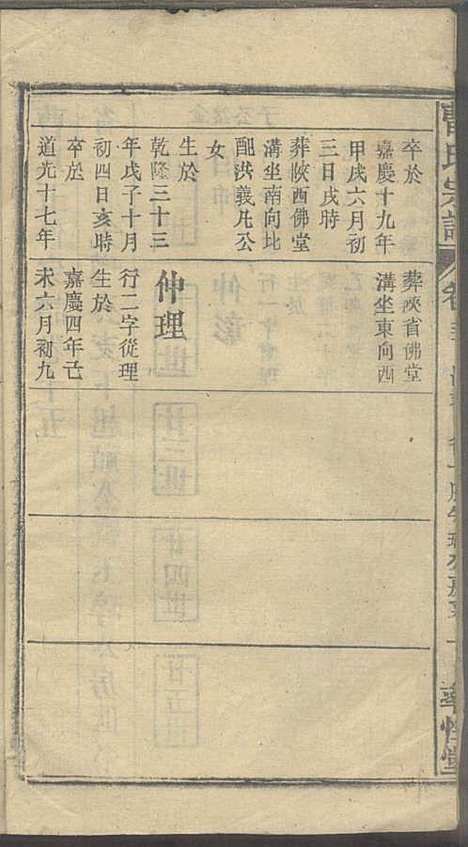 曹氏宗譜
卒於
嘉慶十九年
甲戌六月初
三日戌時
葬陝西佛堂
溝坐南向北
配洪義凡公
女
生於
乾隆三十三
年戊子十月
初四日亥時
卒於
道光十七年
葬陝省佛堂
溝坐東向西
仲理
行二字從理
生於
嘉慶四年己
未六月初九